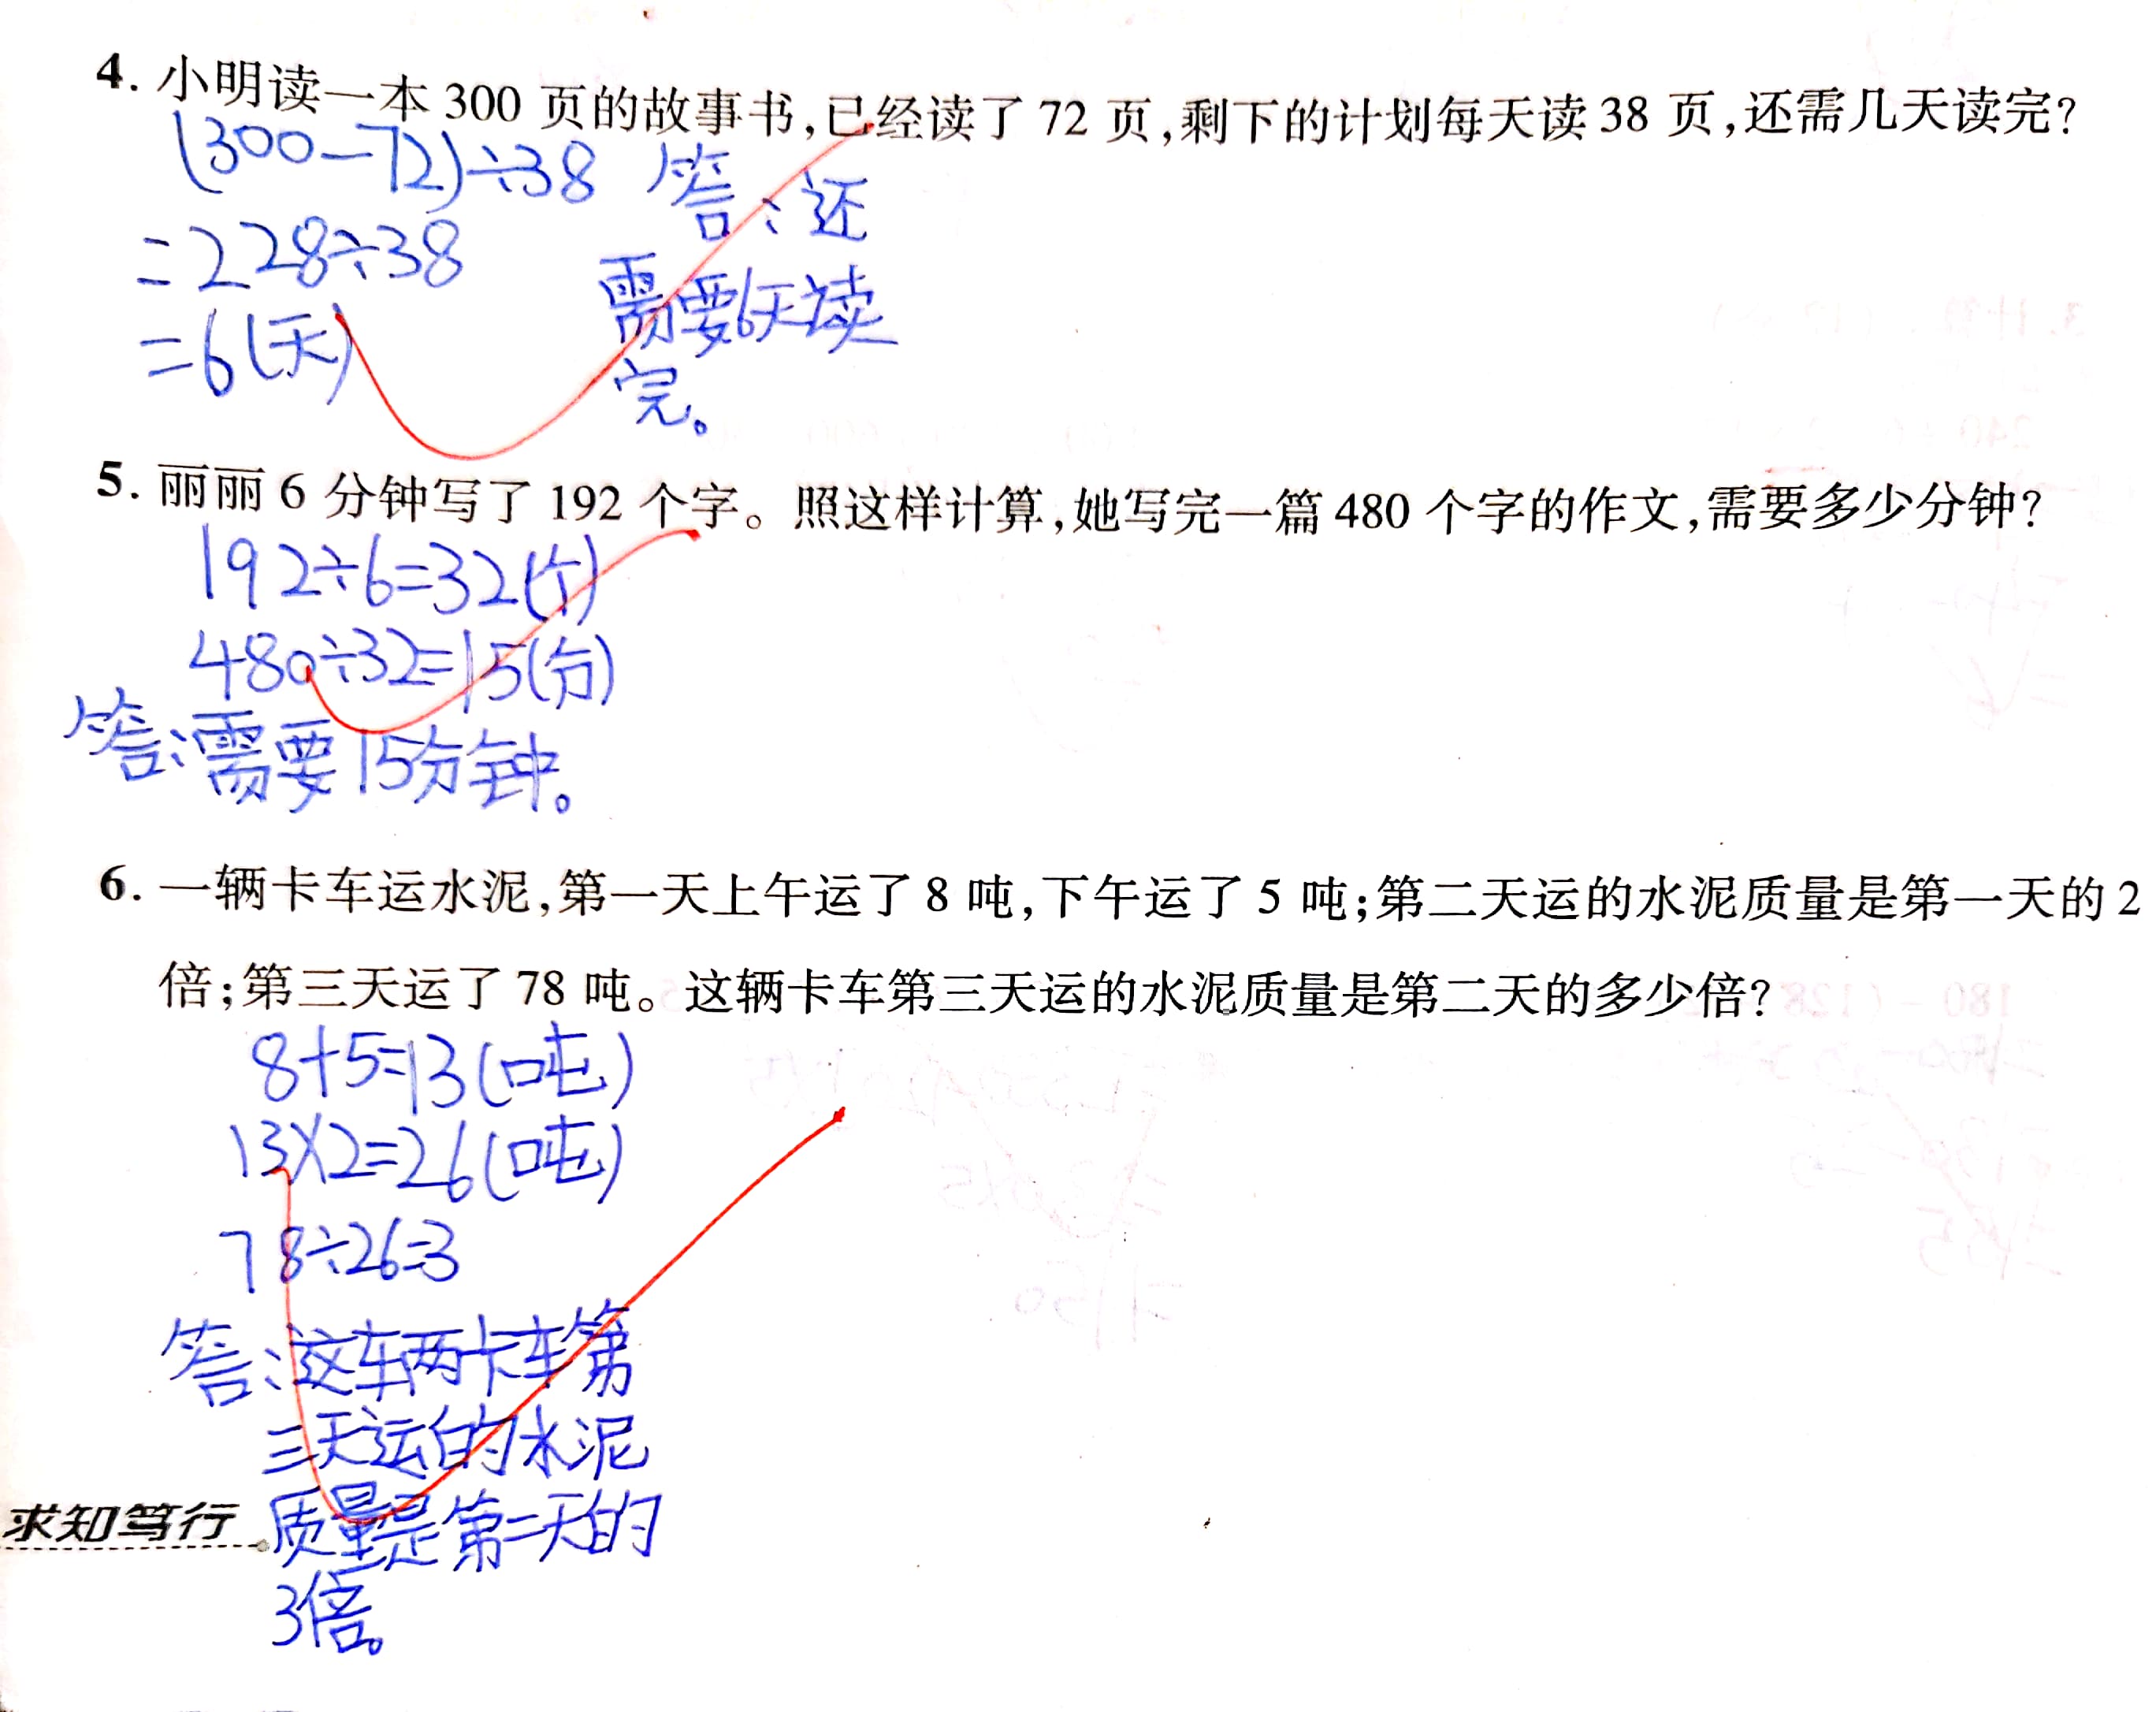 4. 小明读一本 300 页的故事书,已经读了 72 页,剩下的计划每天读 38 页,还需几天读完?
(300-72)÷38
=228÷38
=6(天)
答:还
需要6天读
完。
5. 丽丽 6 分钟写了 192 个字。照这样计算,她写完一篇 480 个字的作文,需要多少分钟?
192÷6=32(个)
480÷32=15(分)
答:需要15分钟。
6. 一辆卡车运水泥,第一天上午运了 8 吨,下午运了 5 吨;第二天运的水泥质量是第一天的 2
倍;第三天运了 78 吨。这辆卡车第三天运的水泥质量是第二天的多少倍?
8+5=13(吨)
13×2=26(吨)
78÷26=3
答:这辆卡车第
三天运的水泥
质量是第二天的
3倍。
求知笃行